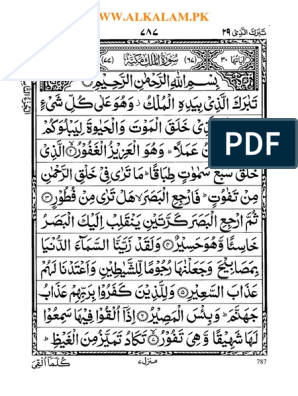 WWW.ALKALAM.PK
تَبٰرَكَ الَّذِیْ ۲۹
۷۸۷
سُوْرَةُ الْمُلْكِ مَكِّيَّةٌ
بِسْمِ اللّٰهِ الرَّحْمٰنِ الرَّحِيْمِ
تَبٰرَكَ الَّذِیْ بِيَدِهِ الْمُلْكُ وَهُوَ عَلٰى كُلِّ شَیْءٍ
الَّذِیْ خَلَقَ الْمَوْتَ وَالْحَيٰوةَ لِيَبْلُوَكُمْ
عَمَلًا وَهُوَ الْعَزِيْزُ الْغَفُوْرُ الَّذِیْ
PDF
خَلَقَ سَبْعَ سَمٰوٰتٍ طِبَاقًا مَا تَرٰى فِیْ خَلْقِ الرَّحْمٰنِ
مِنْ تَفٰوُتٍ فَارْجِعِ الْبَصَرَ هَلْ تَرٰى مِنْ فُطُوْرٍ
ثُمَّ ارْجِعِ الْبَصَرَ كَرَّتَيْنِ يَنْقَلِبْ اِلَيْكَ الْبَصَرُ
خَاسِئًا وَّهُوَ حَسِيْرٌ وَلَقَدْ زَيَّنَّا السَّمَآءَ الدُّنْيَا
بِمَصَابِيْحَ وَجَعَلْنٰهَا رُجُوْمًا لِّلشَّيٰطِيْنِ وَاَعْتَدْنَا لَهُمْ
عَذَابَ السَّعِيْرِ وَلِلَّذِيْنَ كَفَرُوْا بِرَبِّهِمْ عَذَابُ
جَهَنَّمَ وَبِئْسَ الْمَصِيْرُ اِذَآ اُلْقُوْا فِيْهَا سَمِعُوْا
لَهَا شَهِيْقًا وَّهِیَ تَفُوْرُ تَكَادُ تَمَيَّزُ مِنَ الْغَيْظِ
كُلَّمَآ اُلْقِیَ
منزل ۷
787